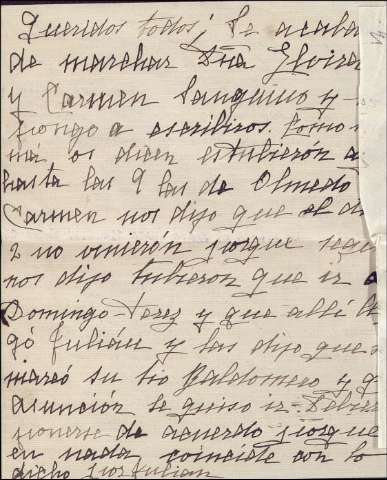 Queridos todos; Se acaba
de marchar Dña Elvira
y Carmen Sanguino y
pongo a escribiros. Como
os dicen estubierón a
hasta las 9 las de Olmedo
Carmen nos dijo que el d
2 no venierón porque segu
nos dijo tubieron que ir a
Domingo-Perez y que allí ll
gó Julián y las dijo que
mareó su tio Baldomero y q
asunción se quiso ir. Debier
ponerse de acuerdo porque
en nada coincide con lo
dicho por Julian